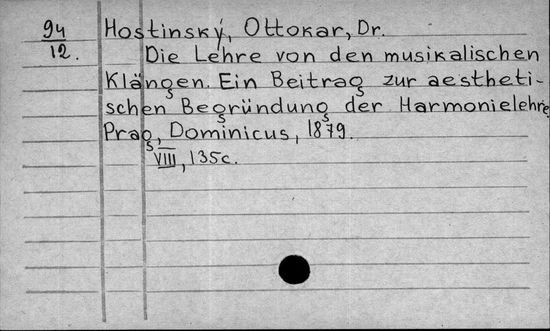 94/12. Hostinský, Ottokar, Dr.
Die Lehre von den musikalischen
Klängen. Ein Beitrag zur aestheti-
schen Begründung der Harmonielehre
Prag, Dominicus, 1879.
VIII, 135c.